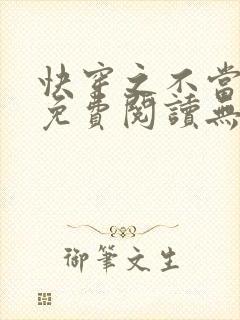 快穿之不當
免費閱讀無
御筆文生